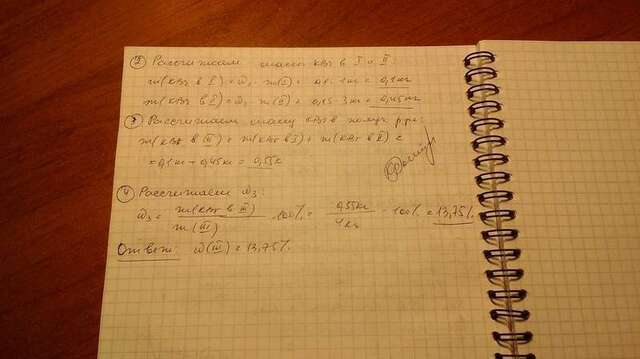 ② Рассчитаем массы KBr в I и II:
m(KBr в I) = ω₁ · m(I) = 0,1 · 1кг = 0,1кг
m(KBr в II) = ω₂ · m(II) = 0,15 · 3кг = 0,45кг
③ Рассчитаем массу KBr в получ. р-ре:
m(KBr в III) = m(KBr в I) + m(KBr в II) =
= 0,1кг + 0,45кг = 0,55кг
④ Рассчитаем ω₃:
ω₃ = m(KBr в III) / m(III) · 100% = 0,55кг / 4кг · 100% = 13,75%
Ответ: ω(III) = 13,75%.